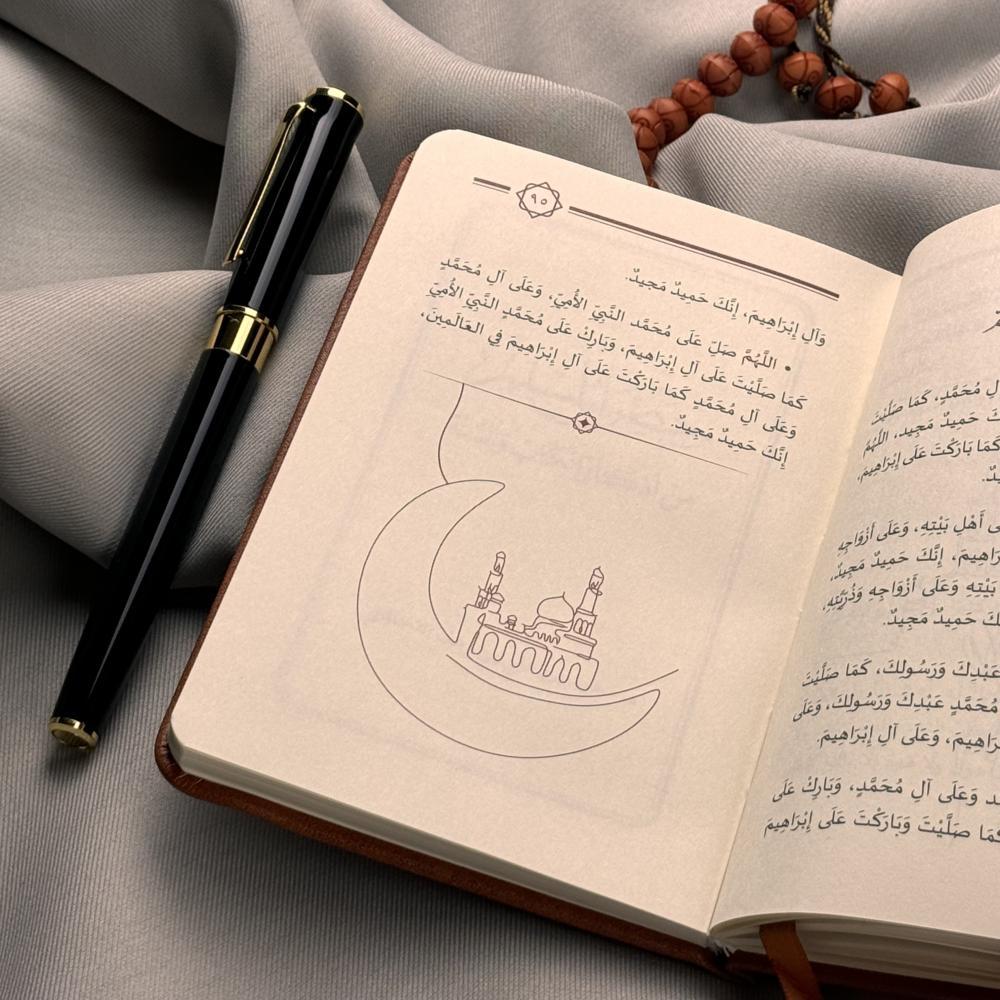 ٩٥
وَآلِ إِبْرَاهِيمَ، إِنَّكَ حَمِيدٌ مَجِيدٌ.
• اللَّهُمَّ صَلِّ عَلَى مُحَمَّد النَّبِيِّ الأُمِيِّ، وَعَلَى آلِ مُحَمَّدٍ
كَمَا صَلَّيْتَ عَلَى آلِ إِبْرَاهِيمَ، وَبَارِكْ عَلَى مُحَمَّد النَّبِيِّ الأُمِيِّ
وَعَلَى آلِ مُحَمَّدٍ كَمَا بَارَكْتَ عَلَى آلِ إِبْرَاهِيمَ فِي العَالَمِينَ،
إِنَّكَ حَمِيدٌ مَجِيدٌ.
مُحَمَّدٍ، كَمَا صَلَّيْتَ
حَمِيدٌ مَجِيد، اللَّهُمَّ
كَمَا بَارَكْتَ عَلَى إِبْرَاهِيمَ،
أَهْلِ بَيْتِهِ، وَعَلَى أَزْوَاجِهِ
إِنَّكَ حَمِيدٌ مَجِيدٌ،
بَيْتِهِ وَعَلَى أَزْوَاجِهِ وَذُرِّيَّتِهِ،
حَمِيدٌ مَجِيدٌ.
عَبْدِكَ وَرَسُولِكَ، كَمَا صَلَّيْتَ
مُحَمَّدٍ عَبْدِكَ وَرَسُولِكَ، وَعَلَى
وَعَلَى آلِ إِبْرَاهِيمَ.
وَعَلَى آلِ مُحَمَّدٍ، وَبَارِكْ عَلَى
كَمَا صَلَّيْتَ وَبَارَكْتَ عَلَى إِبْرَاهِيمَ